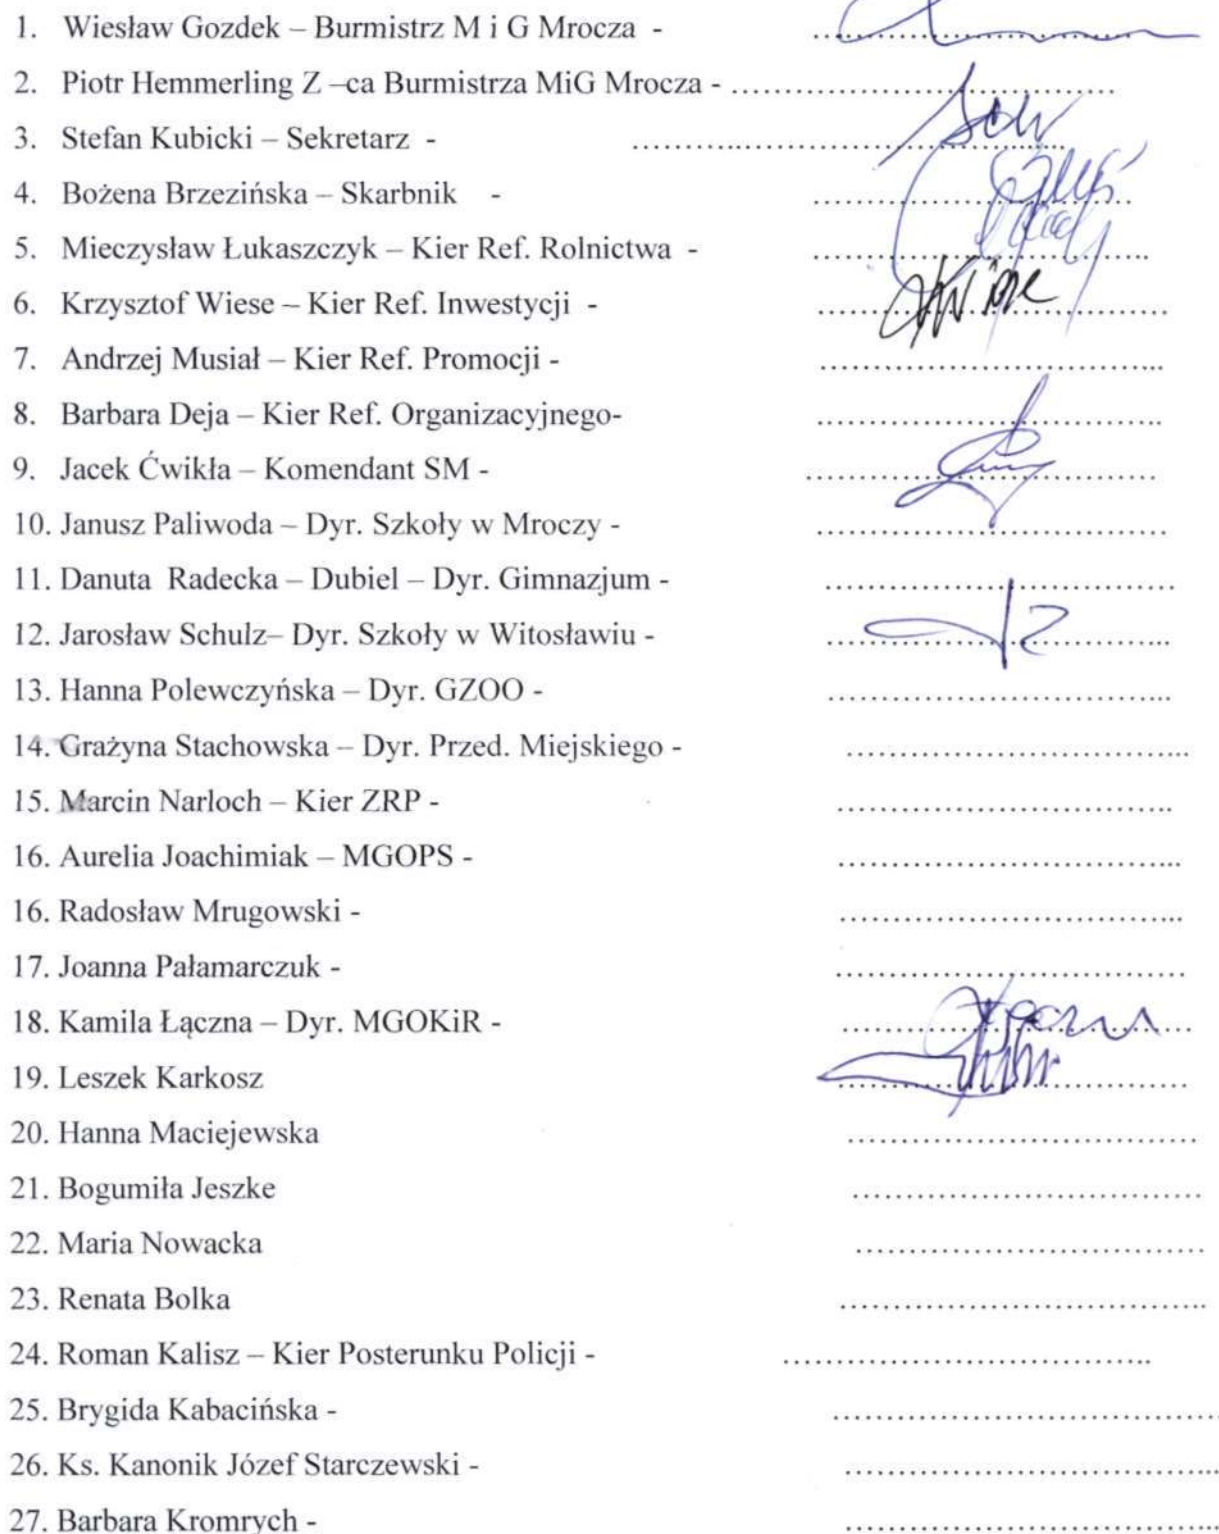 1. Wiesław Gozdek – Burmistrz M i G Mrocza - ....................................
2. Piotr Hemmerling Z –ca Burmistrza MiG Mrocza - ....................................
3. Stefan Kubicki – Sekretarz - ....................................
4. Bożena Brzezińska – Skarbnik - ....................................
5. Mieczysław Łukaszczyk – Kier Ref. Rolnictwa - ....................................
6. Krzysztof Wiese – Kier Ref. Inwestycji - ....................................
7. Andrzej Musiał – Kier Ref. Promocji - ....................................
8. Barbara Deja – Kier Ref. Organizacyjnego- ....................................
9. Jacek Ćwikła – Komendant SM - ....................................
10. Janusz Paliwoda – Dyr. Szkoły w Mroczy - ....................................
11. Danuta Radecka – Dubiel – Dyr. Gimnazjum - ....................................
12. Jarosław Schulz– Dyr. Szkoły w Witosławiu - ....................................
13. Hanna Polewczyńska – Dyr. GZOO - ....................................
14. Grażyna Stachowska – Dyr. Przed. Miejskiego - ....................................
15. Marcin Narloch – Kier ZRP - ....................................
16. Aurelia Joachimiak – MGOPS - ....................................
16. Radosław Mrugowski - ....................................
17. Joanna Pałamarczuk - ....................................
18. Kamila Łączna – Dyr. MGOKiR - ....................................
19. Leszek Karkosz ....................................
20. Hanna Maciejewska ....................................
21. Bogumiła Jeszke ....................................
22. Maria Nowacka ....................................
23. Renata Bolka ....................................
24. Roman Kalisz – Kier Posterunku Policji - ....................................
25. Brygida Kabacińska - ....................................
26. Ks. Kanonik Józef Starczewski - ....................................
27. Barbara Kromrych - ....................................